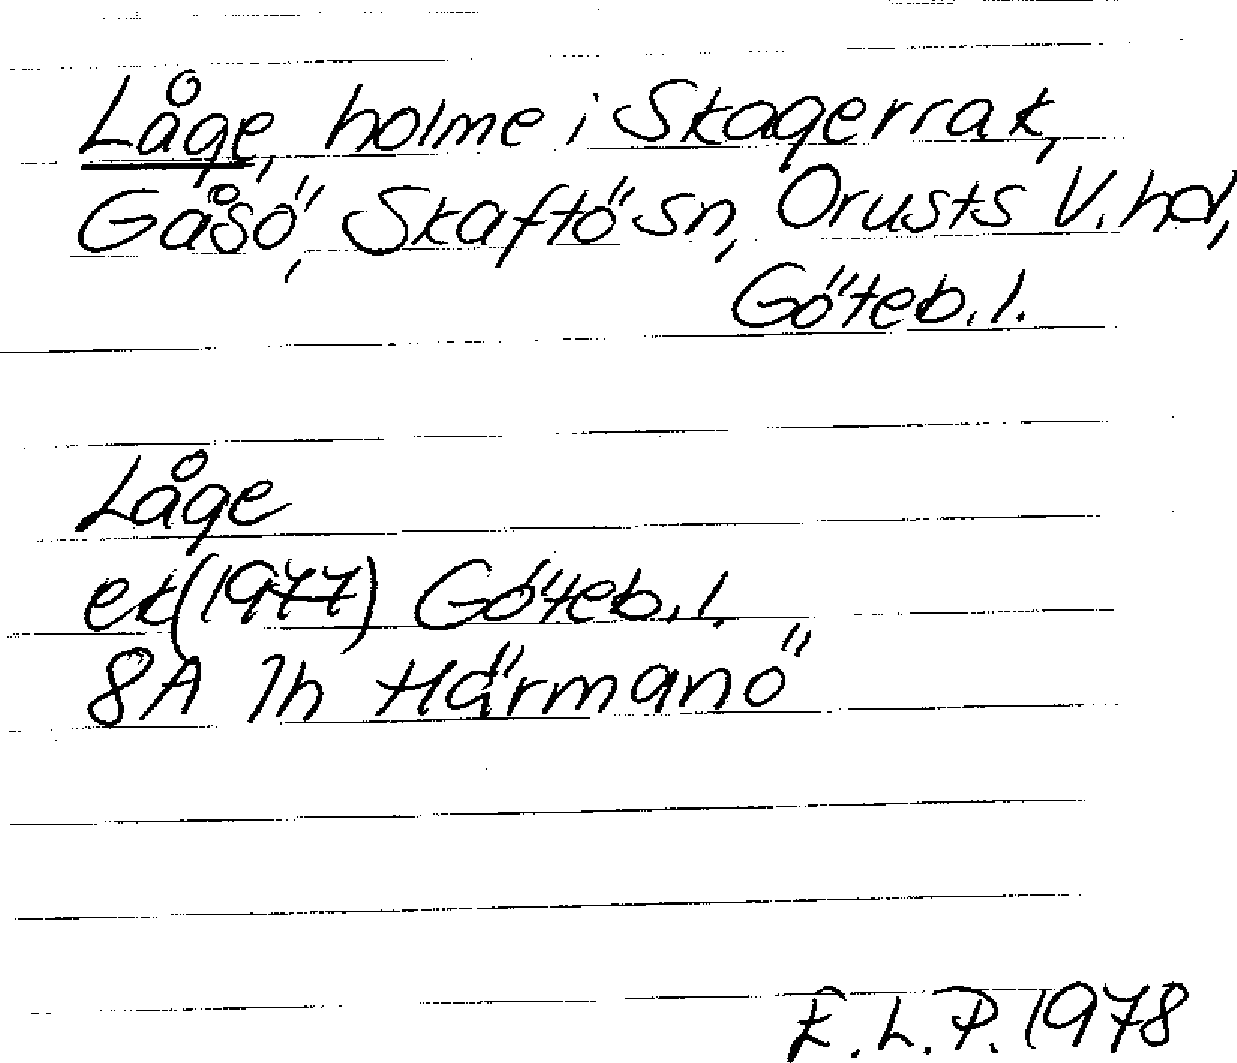 Låge, holme i Skagerrak,
Gåsö, Skaftö sn, Orusts V. hd,
Göteb. l.
Låge
ek (1977) Göteb. l.
8A 7h Härmanö
E. L. P. 1978